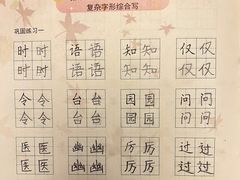 复杂字形综合写
巩固练习一
时时 语语 知知 仅仅
时时 语语 知知 仅仅
令令 台台 园园 问问
令令 台台 园园 问问
医医 幽幽 厉厉 过过
医医 幽幽 厉厉 过过